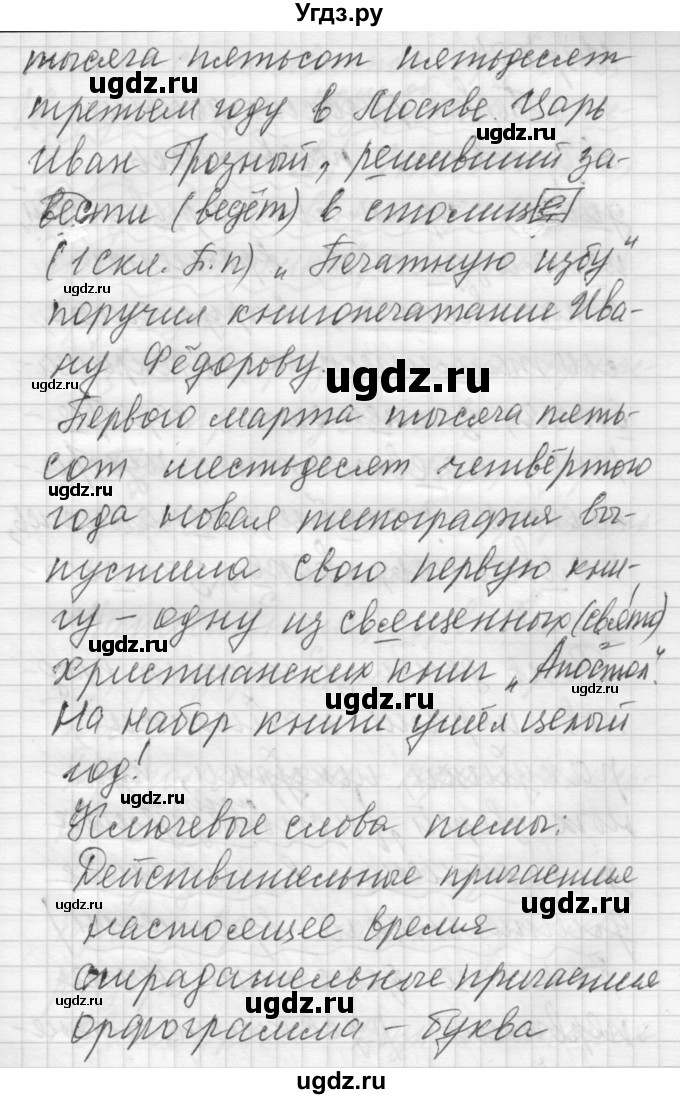 Угдз.ру
тысяча пятьсот пятьдесят
ugdz.ru
третьем году в Москве. Царь
ugdz.ru
Иван Грозный, решивший за-
вести (ведёт) в столице
ugdz.ru
(1 скл. П.п) „Печатную избу“
ugdz.ru
поручил книгопечатание Ива-
ну Фёдорову.
ugdz.ru
ugdz.ru
Первого марта тысяча пять-
сот шестьдесят четвёртого
ugdz.ru
года новая типография вы-
ugdz.ru
пустила свою первую кни-
гу – одну из священных (свято)
ugdz.ru
христианских книг „Апостол“.
ugdz.ru
На набор книги ушёл целый
год!
ugdz.ru
Ключевые слова темы:
Действительные причастия
ugdz.ru
ugdz.ru
настоящее время
страдательные причастия
ugdz.ru
ugdz.ru
орфограмма – буква
ugdz.ru